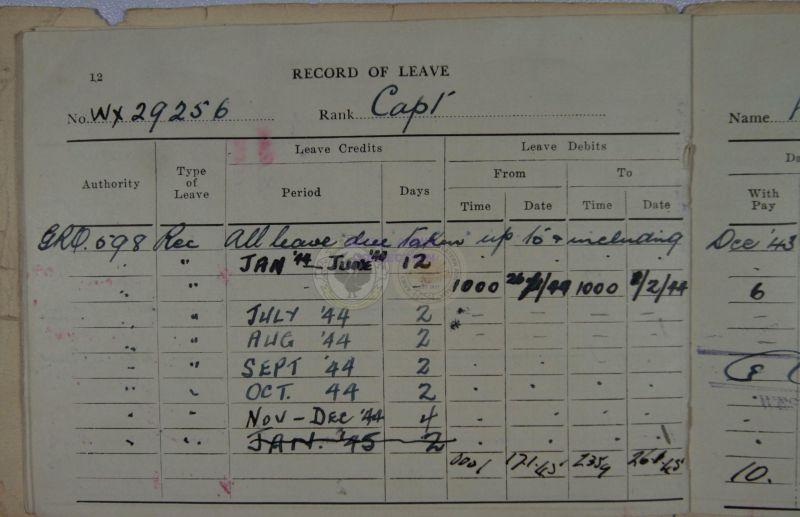 12
RECORD OF LEAVE
No. WX 29256 Rank Capt
Name
Leave Credits Leave Debits
Authority Type of Leave Period Days From To With Pay
Time Date Time Date
GRO. 598 Rec All leave due taken up to & including Dec '43
" JAN '44 - JUNE '44 12
" " - 1000 1000 8/2/44 6
" JULY '44 2
" " AUG '44 2
" " SEPT '44 2
" " OCT. 44 2
" " NOV - DEC '44 4
" " JAN. '45 2
0001 17.1.45 2359 26.1.45 10.